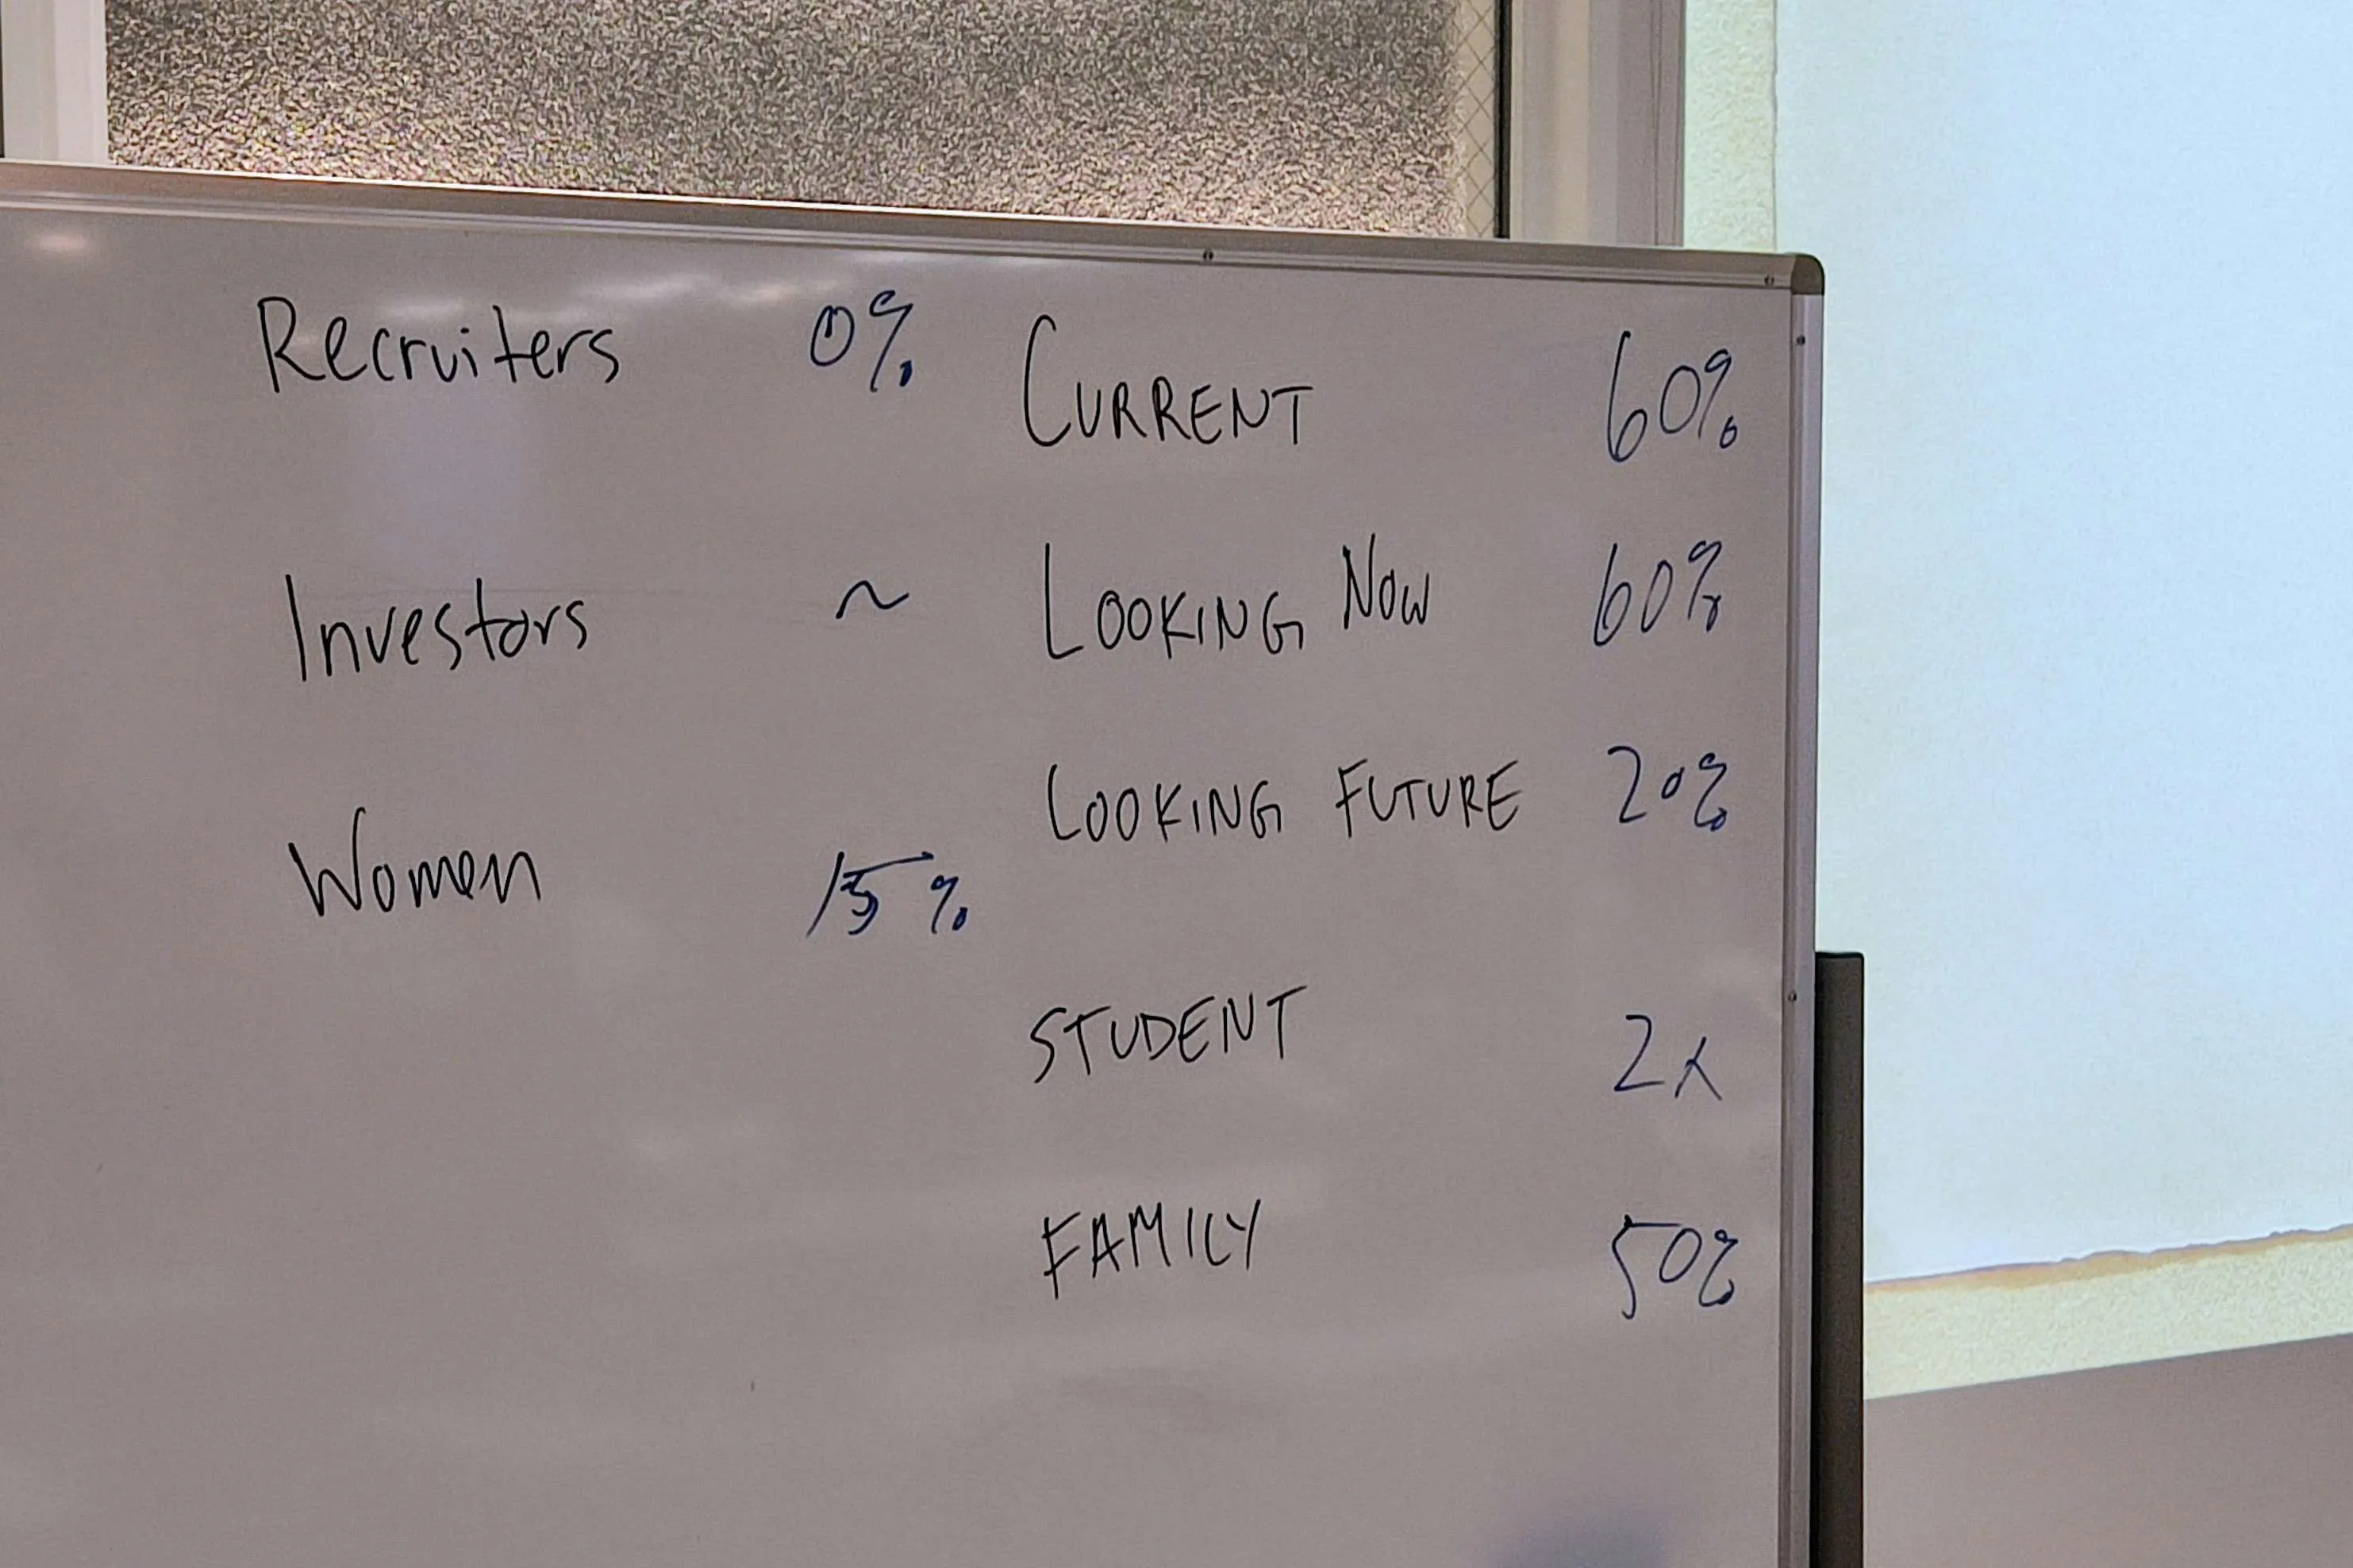 Recruiters 0%
Investors ~
Women 15%
CURRENT 60%
LOOKING NOW 60%
LOOKING FUTURE 20%
STUDENT 2x
FAMILY 50%